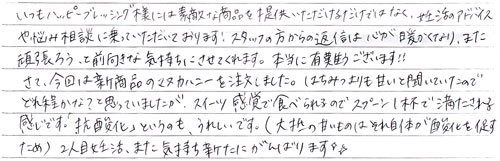 いつもハッピーブレッシング様には素敵な商品を提供いただけるだけではなく、妊活のアドバイス
や悩み相談に乗っていただいております! スタッフの方からの返信は心が暖かくなり、また
頑張ろう、と前向きな気持ちにさせてくれます。本当に有難うございます!!
さて、今回は新商品のマヌカハニーを注文しました。はちみつよりも甘いと聞いていたので
どれ程かな?と思っていましたが、スイーツ感覚で食べられるのでスプーン1杯で満たされる
感じです。"抗酸化"というのも、うれしいです。(大抵の甘いものはそれ自体が酸化を促す
ため) 2人目妊活、また気持ち新たにがんばります。